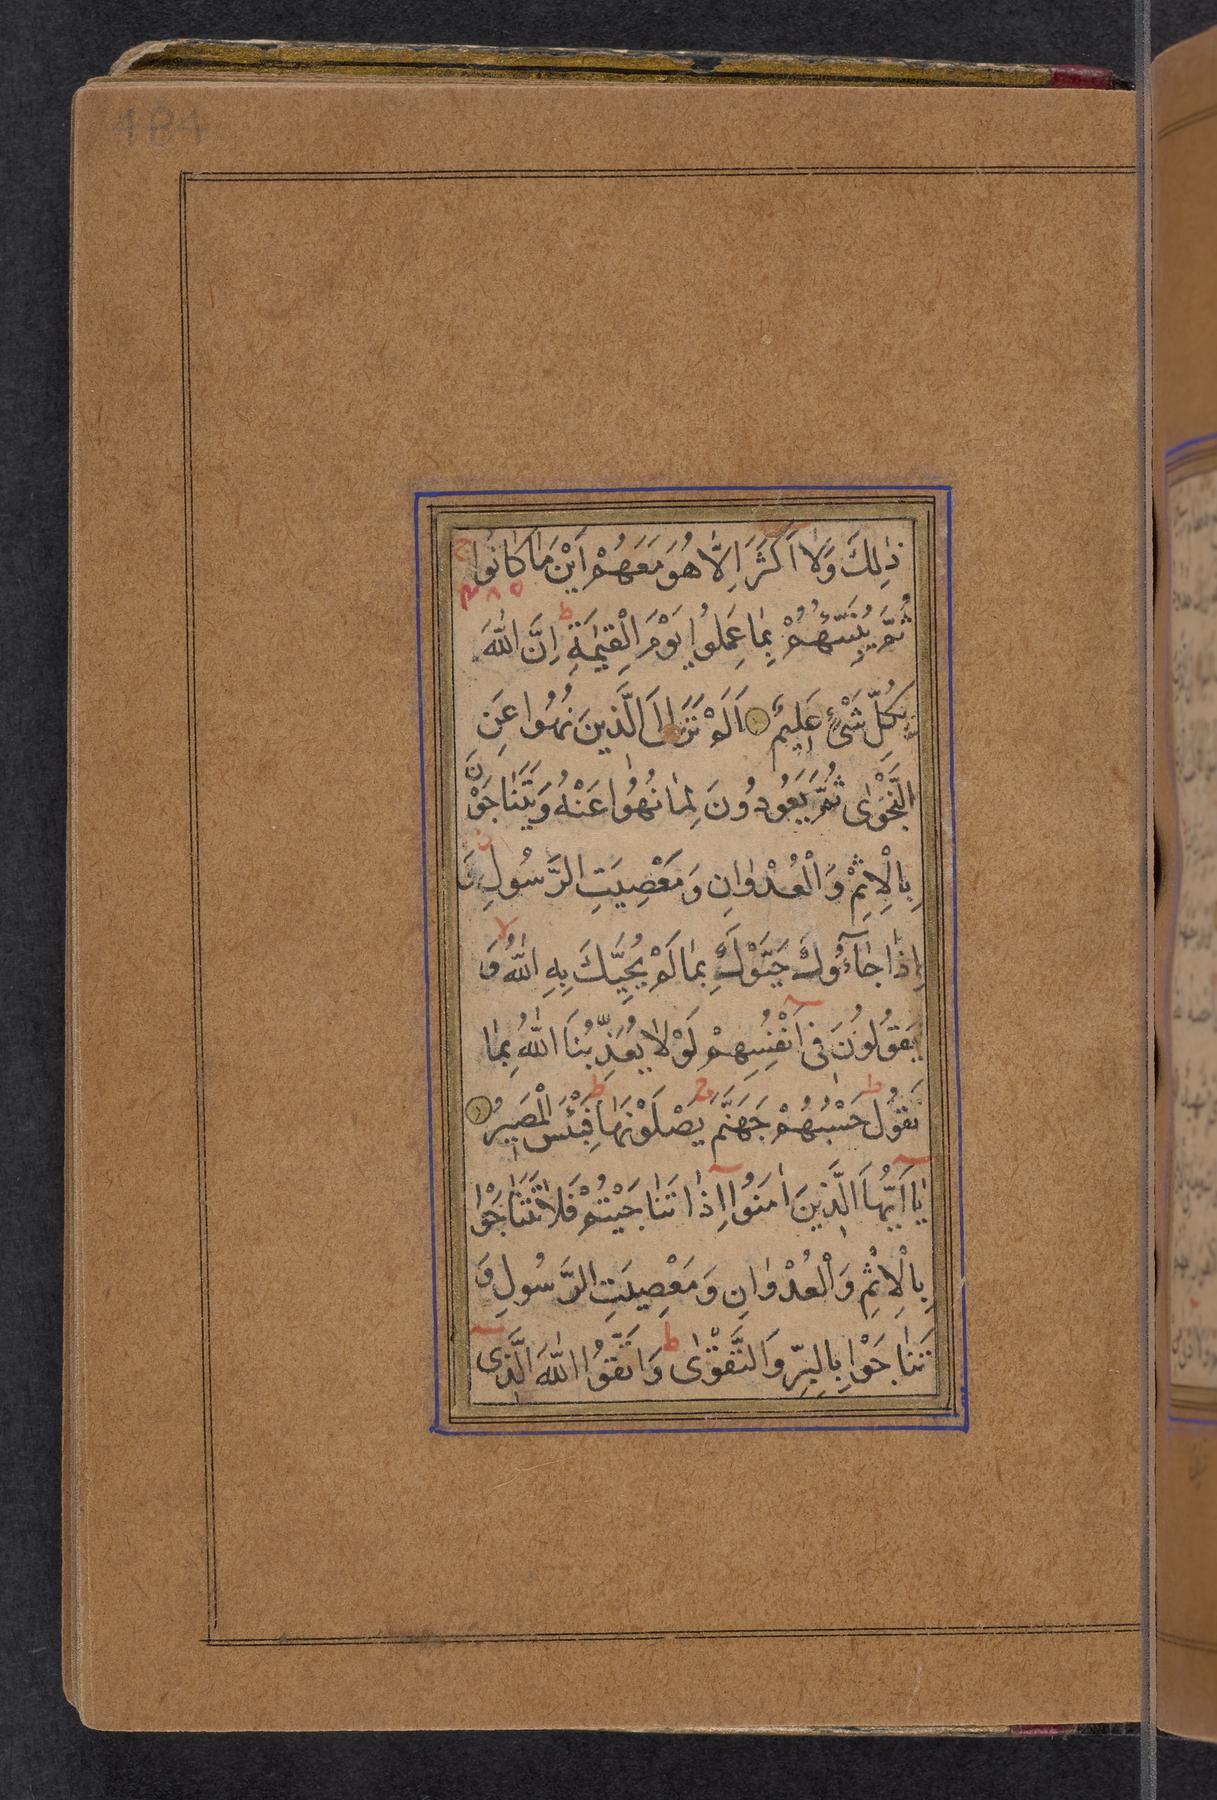 484
ذٰلِكَ وَلَا اَكْثَرَ اِلَّا هُوَ مَعَهُمْ اَيْنَ مَا كَانُوا
ثُمَّ يُنَبِّئُهُمْ بِمَا عَمِلُوا يَوْمَ الْقِيٰمَةِ اِنَّ اللّٰهَ
بِكُلِّ شَىْءٍ عَلِيمٌ اَلَمْ تَرَ اِلَى الَّذِينَ نُهُوا عَنِ
النَّجْوٰى ثُمَّ يَعُودُونَ لِمَا نُهُوا عَنْهُ وَيَتَنَاجَوْنَ
بِالْاِثْمِ وَالْعُدْوَانِ وَمَعْصِيَتِ الرَّسُولِ وَ
اِذَا جَآءُوكَ حَيَّوْكَ بِمَا لَمْ يُحَيِّكَ بِهِ اللّٰهُ وَ
يَقُولُونَ فِى اَنْفُسِهِمْ لَوْلَا يُعَذِّبُنَا اللّٰهُ بِمَا
نَقُولُ حَسْبُهُمْ جَهَنَّمُ يَصْلَوْنَهَا فَبِئْسَ الْمَصِيرُ
يَا اَيُّهَا الَّذِينَ اٰمَنُوا اِذَا تَنَاجَيْتُمْ فَلَا تَتَنَاجَوْا
بِالْاِثْمِ وَالْعُدْوَانِ وَمَعْصِيَتِ الرَّسُولِ وَ
تَنَاجَوْا بِالْبِرِّ وَالتَّقْوٰى وَاتَّقُوا اللّٰهَ الَّذِى